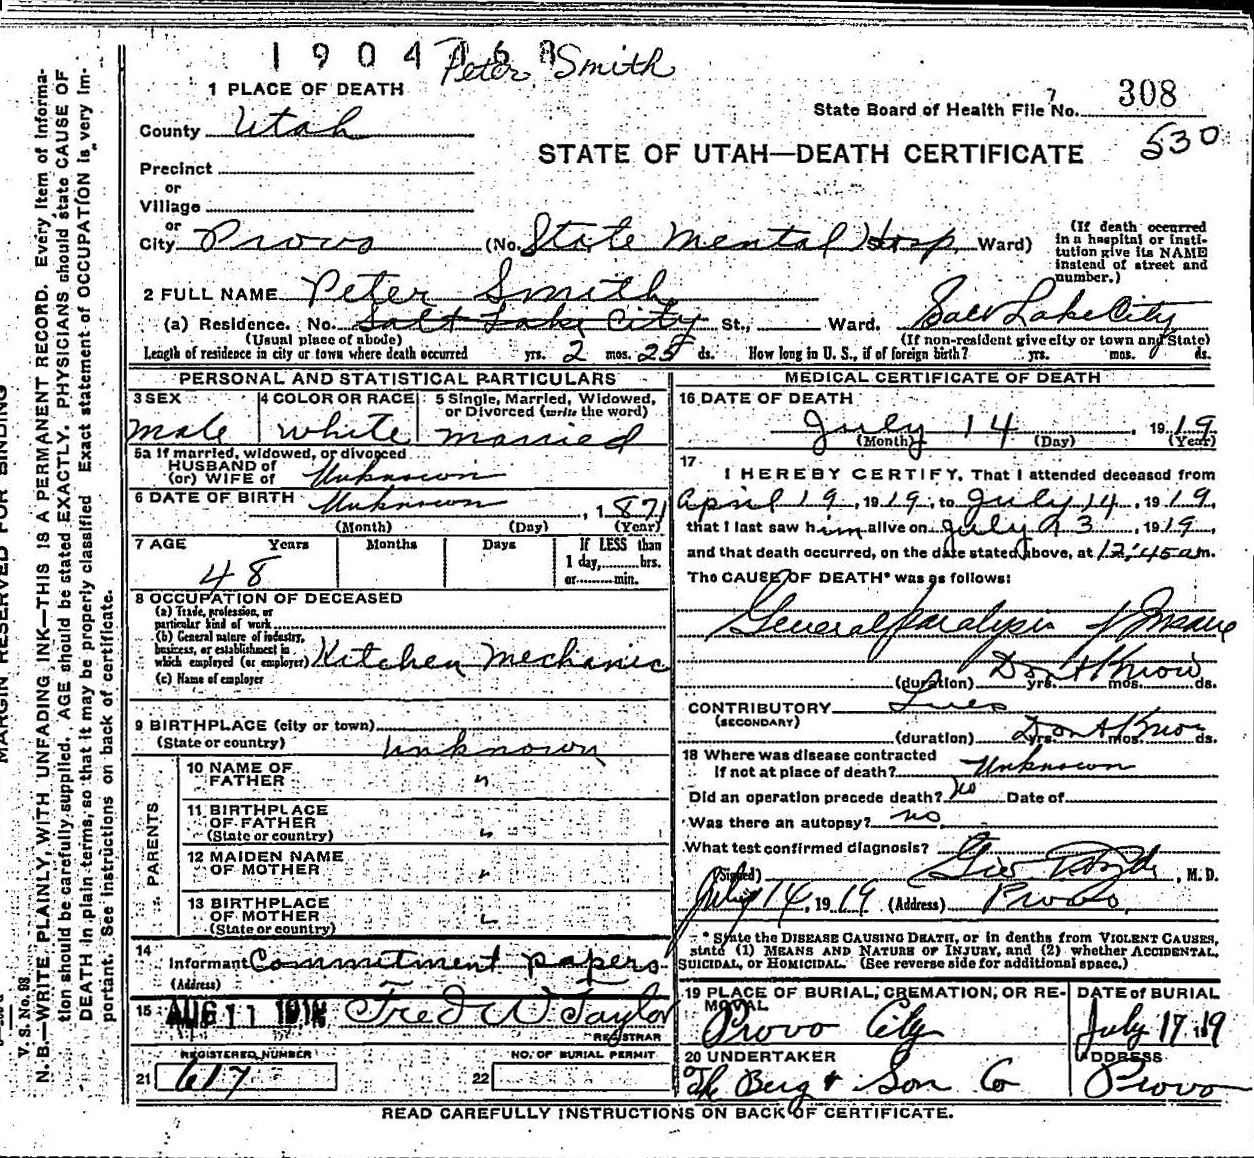 1904168
Peter Smith
1 PLACE OF DEATH
State Board of Health File No. 308
County Utah
530
STATE OF UTAH—DEATH CERTIFICATE
Precinct
or
Village
or
City Provo (No. State Mental Hosp. Ward)
(If death occurred in a hospital or institution give its NAME instead of street and number.)
2 FULL NAME Peter Smith
(a) Residence. No. Salt Lake City St., Ward. Salt Lake City
(Usual place of abode) (If non-resident give city or town and State)
Length of residence in city or town where death occurred yrs. 2 mos. 25 ds. How long in U. S., if of foreign birth? yrs. mos. ds.
PERSONAL AND STATISTICAL PARTICULARS
3 SEX
male
4 COLOR OR RACE
white
5 Single, Married, Widowed,
or Divorced (write the word)
married
5a If married, widowed, or divorced
HUSBAND of
(or) WIFE of Unknown
6 DATE OF BIRTH Unknown, 1871
(Month) (Day) (Year)
7 AGE Years Months Days If LESS than
1 day,........hrs.
or........min.
48
8 OCCUPATION OF DECEASED
(a) Trade, profession, or
particular kind of work
(b) General nature of industry,
business, or establishment in
which employed (or employer) Kitchen Mechanic
(c) Name of employer
9 BIRTHPLACE (city or town)
(State or country) unknown
PARENTS
10 NAME OF
FATHER "
11 BIRTHPLACE
OF FATHER
(State or country) "
12 MAIDEN NAME
OF MOTHER "
13 BIRTHPLACE
OF MOTHER
(State or country) "
14
Informant Commitment papers
(Address)
15 AUG 11 Fred W Taylor
REGISTRAR
REGISTERED NUMBER
21 617
NO. OF BURIAL PERMIT
22
MEDICAL CERTIFICATE OF DEATH
16 DATE OF DEATH
July 14, 1919
(Month) (Day) (Year)
17
I HEREBY CERTIFY, That I attended deceased from
April 19, 1919, to July 14, 1919,
that I last saw him alive on July 23, 1919,
and that death occurred, on the date stated above, at 12:45 am.
The CAUSE OF DEATH* was as follows:
General Paralysis of Insane
(duration) Don't Know yrs. mos. ds.
CONTRIBUTORY Lues
(SECONDARY)
(duration) Don't Know yrs. mos. ds.
18 Where was disease contracted
If not at place of death? Unknown
Did an operation precede death? no Date of
Was there an autopsy? no
What test confirmed diagnosis?
(Signed) , M. D.
July 14, 1919 (Address) Provo
* State the DISEASE CAUSING DEATH, or in deaths from VIOLENT CAUSES,
state (1) MEANS AND NATURE OF INJURY, and (2) whether ACCIDENTAL,
SUICIDAL, or HOMICIDAL. (See reverse side for additional space.)
19 PLACE OF BURIAL, CREMATION, OR RE-
MOVAL
Provo City
DATE of BURIAL
July 17 19
20 UNDERTAKER
Berg & Son Co
ADDRESS
Provo
READ CAREFULLY INSTRUCTIONS ON BACK OF CERTIFICATE.
MARGIN RESERVED FOR BINDING
V. S. No. 98
N. B.—WRITE PLAINLY, WITH UNFADING INK—THIS IS A PERMANENT RECORD. Every item of informa-
tion should be carefully supplied. AGE should be stated EXACTLY. PHYSICIANS should state CAUSE OF
DEATH in plain terms, so that it may be properly classified. Exact statement of OCCUPATION is very im-
portant. See instructions on back of certificate.